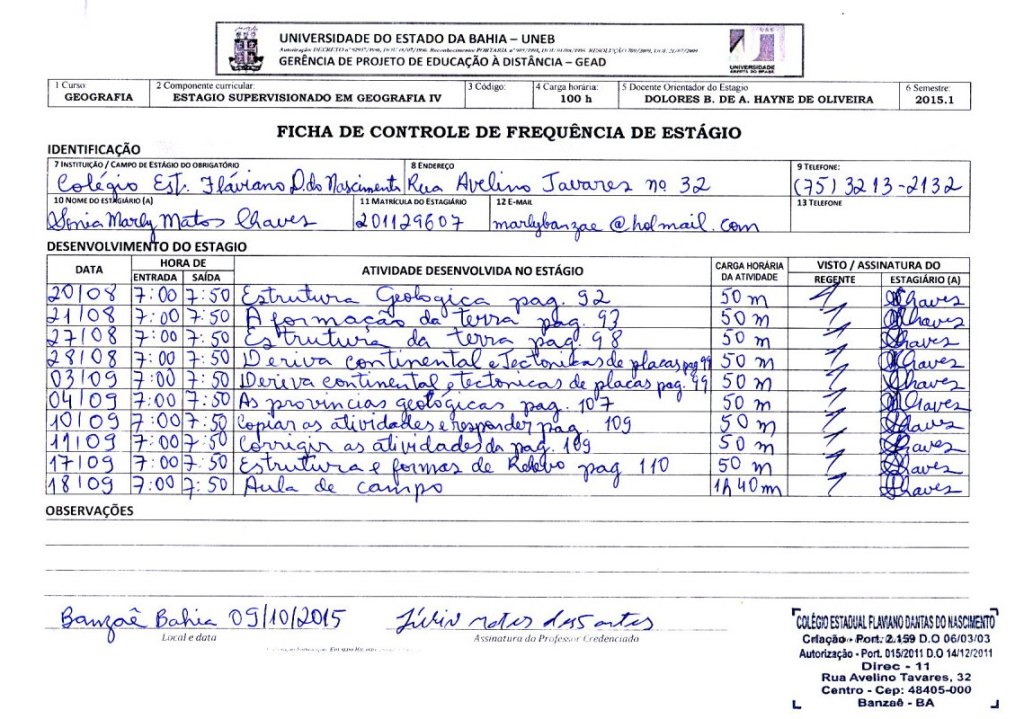 UNIVERSIDADE DO ESTADO DA BAHIA – UNEB
GERÊNCIA DE PROJETO DE EDUCAÇÃO À DISTÂNCIA – GEAD
UNIVERSIDADE ABERTA DO BRASIL
1 Curso: GEOGRAFIA
2 Componente curricular: ESTAGIO SUPERVISIONADO EM GEOGRAFIA IV
3 Código:
4 Carga horária: 100 h
5 Docente Orientador do Estagio DOLORES B. DE A. HAYNE DE OLIVEIRA
6 Semestre: 2015.1
FICHA DE CONTROLE DE FREQUÊNCIA DE ESTÁGIO
IDENTIFICAÇÃO
7 INSTITUIÇÃO / CAMPO DE ESTÁGIO DO OBRIGATÓRIO Colégio Est. Fláviano D. do Nascimento
8 ENDEREÇO Rua Avelino Tavares nº 32
9 TELEFONE: (75) 3213-2132
10 NOME DO ESTAGIÁRIO (A) Sonia Marly Matos Chaves
11 MATRÍCULA DO ESTAGIÁRIO 201129607
12 E-MAIL marlybanzae@hotmail.com
13 TELEFONE
DESENVOLVIMENTO DO ESTAGIO
DATA HORA DE ENTRADA SAÍDA ATIVIDADE DESENVOLVIDA NO ESTÁGIO CARGA HORÁRIA DA ATIVIDADE VISTO / ASSINATURA DO REGENTE ESTAGIÁRIO (A)
20/08 7:00 7:50 Estrutura Geologica pag. 92 50 m Chaves
21/08 7:00 7:50 A formação da terra pag. 93 50 m Chaves
27/08 7:00 7:50 Estrutura da terra pag. 98 50 m Chaves
28/08 7:00 7:50 Deriva continental e Tectonicas de placas pag 99 50 m Chaves
03/09 7:00 7:50 Deriva continental e tectonicas de placas pag. 99 50 m Chaves
04/09 7:00 7:50 As provincias geológicas pag. 107 50 m Chaves
10/09 7:00 7:50 Copiar as atividades e responder pag. 109 50 m Chaves
11/09 7:00 7:50 Corrigir as atividades da pag. 109 50 m Chaves
17/09 7:00 7:50 Estrutura e formas de Relevo pag 110 50 m Chaves
18/09 7:00 7:50 Aula de campo 1h 40m Chaves
OBSERVAÇÕES
Banzaê Bahia 09/10/2015
Local e data
Assinatura do Professor Credenciado
COLÉGIO ESTADUAL FLAVIANO DANTAS DO NASCIMENTO
Criação - Port. 2.159 D.O 06/03/03
Autorização - Port. 015/2011 D.O 14/12/2011
Direc - 11
Rua Avelino Tavares, 32
Centro - Cep: 48405-000
Banzaê - BA